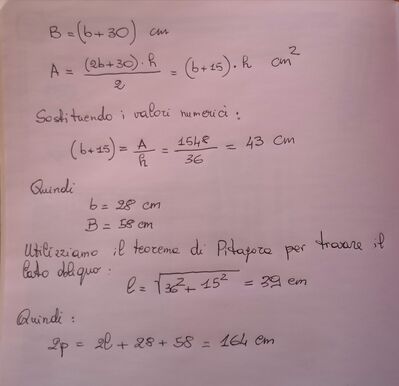 B = (b+30) cm
A = (2b+30)·h / 2 = (b+15)·h cm²
Sostituendo i valori numerici:
(b+15) = A/h = 1548/36 = 43 cm
Quindi
b = 28 cm
B = 58 cm
Utilizziamo il teorema di Pitagora per trovare il
lato obliquo:
l = √(36² + 15²) = 39 cm
Quindi:
2p = 2l + 28 + 58 = 164 cm